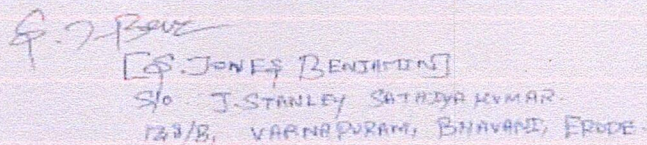 [S. JONES BENJAMIN]
S/o J. STANLEY SATHIYA KUMAR.
VARNAPURAM, BHAVANI, ERODE.